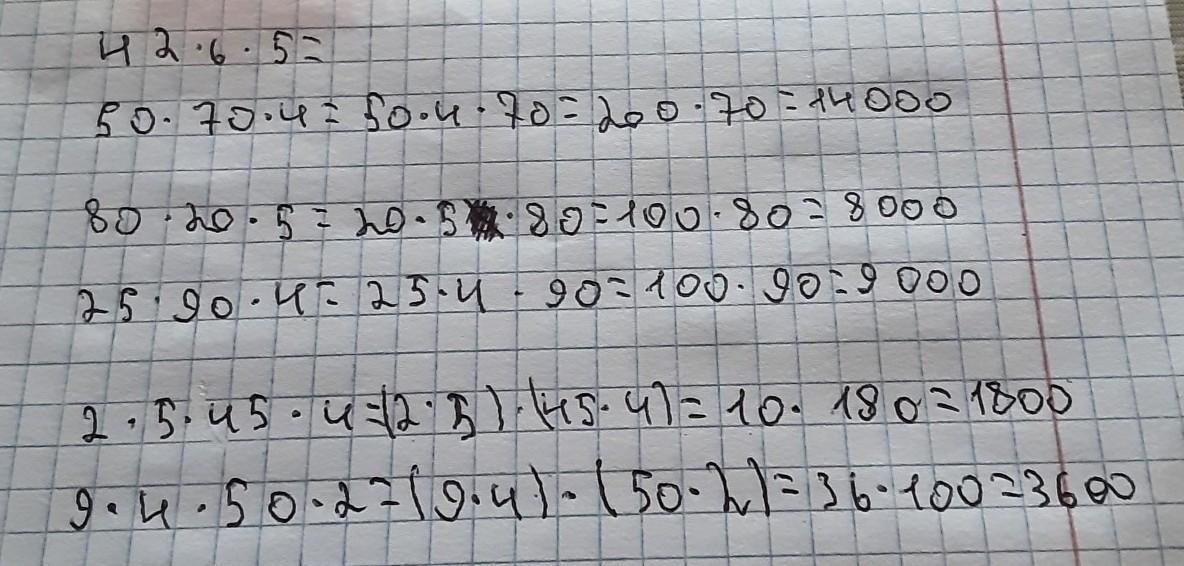 42·6·5=
50·70·4=50·4·70=200·70=14000
80·20·5=20·5·80=100·80=8000
25·90·4=25·4·90=100·90=9000
2·5·45·4=(2·5)·(45·4)=10·180=1800
9·4·50·2=(9·4)·(50·2)=36·100=3600